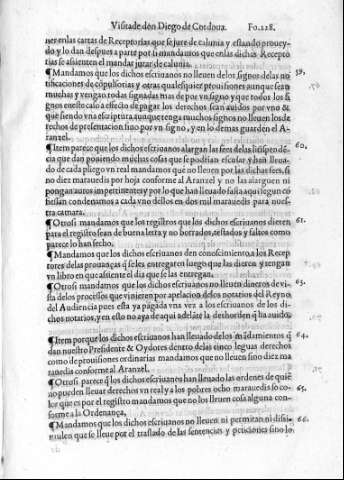 Visita de don Diego de Cordoua. Fo.128.
ner en las cartas de Receptorias que se jure de calunia y estando prouey-
do y lo dan despues a parte por si mandamos que en las dichas Recepto
rias se assienten el mandar jurar de calunia.
¶ Mandamos que los dichos escriuanos no lleuen de los signos de las no 59,
tificaciones de cõpulsorias y otras qualesquier prouisiones aunque sean
muchas y vengan todas signadas mas de por vn signo y que todos los si
gnos en este caso a effecto de pagar los derechos sean auidos por vno &
que siendo vna escriptura aunque tenga muchos signos no lleuen los de
rechos de presentacion sino por vn signo, y en lo demas guarden el A-
ranzel.
¶ Item parece que los dichos escriuanos alargan las fees de las lites pẽdẽ- 60,
cia que dan poniendo muchas cosas que se podrian escusar y han lleua-
do de cada pliego vn real mandamos que no lleuen por las dichas fees, si
no diez marauedis por hoja conforme al Aranzel y no las alarguen ni
pongan autos impertinentes y por lo que han lleuado fasta aqui segun co
stumbre condenamos a cada vno dellos en dos mil marauedis para nues-
tra camara.
¶ Otrosi mandamos que los registros que los dichos escriuanos dieren 61.
para el registro sean de buena letra y no borrados, testados y faltos como
parece lo han fecho.
¶ Mandamos que los dichos escriuanos den conoscimiento, a los Recep 62.
tores de las prouanças q̃ se les entregaren luego que las dieren y tengan
vn libro en que assiente el dia que se las entregan.
¶ Otrosi mandamos que los dichos escriuanos no lleuẽ dineros de vi- 63.
sta de los processos que vinieren por apelacion de los notarios del Reyno
del Audiencia pues esta ya pagada vna vez a los escriuanos de los di-
chos notarios, y en esto no aya de aqui adelãte la deshordẽ q̃ ha auido.
¶ Item porque los dichos escriuanos han lleuado de los mãdamientos q̃ 64.
dan nuestro Presidente & Oydores dentro de las cinco leguas derechos
como de prouisiones ordinarias mandamos que no lleuen sino diez ma
rauedis conforme al Aranzel.
¶ Otrosi parece q̃ los dichos escriuanos han lleuado las ordenes de quiẽ
no pueden lleuar derechos vn real y a los pobres ocho marauedis so co- 65.
lor que es por el registro mandamos que no los lleuen cosa alguna con-
forme a la Ordenança,
¶ Mandamos que los dichos escriuanos no lleuen ni permitan ni dissi- 66.
mulen que se lleue por el traslado de las sentencias y peticiones sino lo